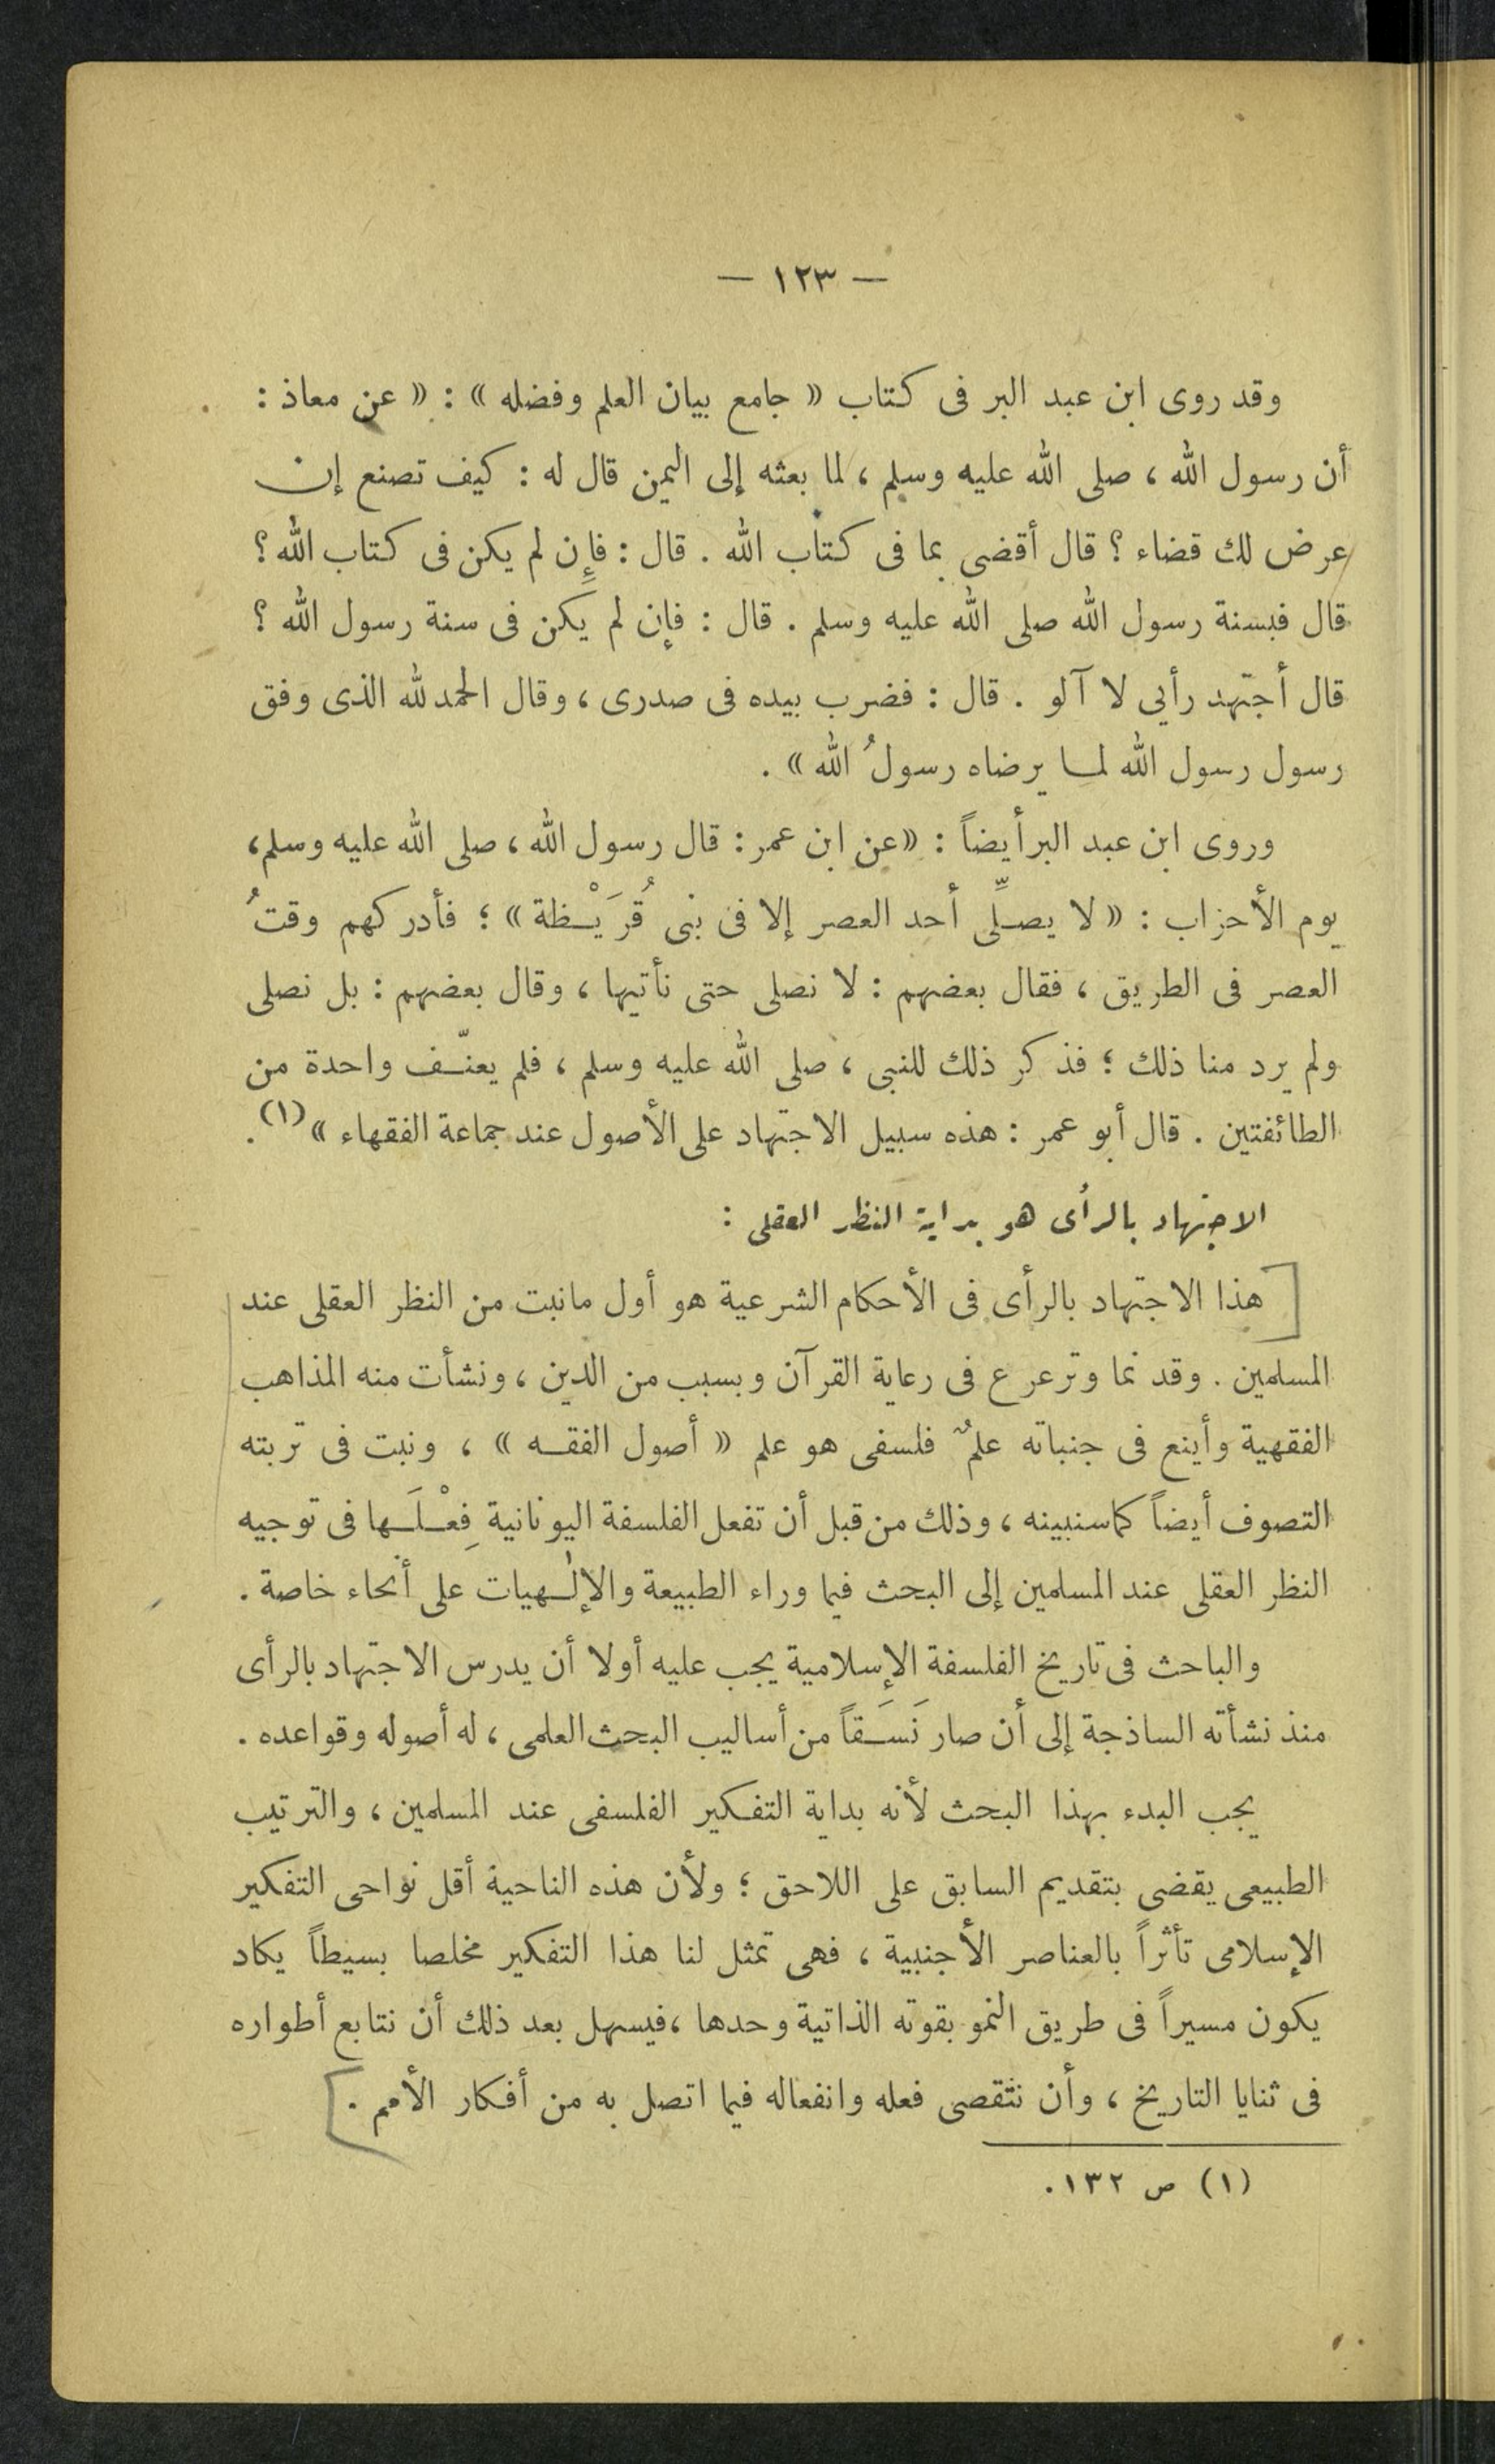 — ١٢٣ —
وقد روى ابن عبد البر فى كتاب « جامع بيان العلم وفضله » : « عن معاذ :
أن رسول الله ، صلى الله عليه وسلم ، لما بعثه إلى اليمن قال له : كيف تصنع إن
عرض لك قضاء ؟ قال أقضى بما فى كتاب الله . قال : فإن لم يكن فى كتاب الله ؟
قال فبسنة رسول الله صلى الله عليه وسلم . قال : فإن لم يكن فى سنة رسول الله ؟
قال أجتهد رأيى لا آلو . قال : فضرب بيده فى صدرى ، وقال الحمد لله الذى وفق
رسول رسول الله لما يرضاه رسولُ الله » .
وروى ابن عبد البر أيضاً : « عن ابن عمر : قال رسول الله ، صلى الله عليه وسلم ،
يوم الأحزاب : « لا يصلِّى أحد العصر إلا فى بنى قُرَيْظة » ؛ فأدركهم وقتُ
العصر فى الطريق ، فقال بعضهم : لا نصلى حتى نأتيها ، وقال بعضهم : بل نصلى
ولم يرد منا ذلك ؛ فذكر ذلك للنبى ، صلى الله عليه وسلم ، فلم يعنّف واحدة من
الطائفتين . قال أبو عمر : هذه سبيل الاجتهاد على الأصول عند جماعة الفقهاء » (١) .
الاجتهاد بالرأى هو بداية النظر العقلى :
هذا الاجتهاد بالرأى فى الأحكام الشرعية هو أول مانبت من النظر العقلى عند
المسلمين . وقد نما وترعرع فى رعاية القرآن وبسبب من الدين ، ونشأت منه المذاهب
الفقهية وأينع فى جنباته علمٌ فلسفى هو علم « أصول الفقه » ، ونبت فى تربته
التصوف أيضاً كما سنبينه ، وذلك من قبل أن تفعل الفلسفة اليونانية فِعْلَها فى توجيه
النظر العقلى عند المسلمين إلى البحث فيما وراء الطبيعة والإلٰهيات على أنحاء خاصة .
والباحث فى تاريخ الفلسفة الإسلامية يجب عليه أولا أن يدرس الاجتهاد بالرأى
منذ نشأته الساذجة إلى أن صار نَسَقاً من أساليب البحث العلمى ، له أصوله وقواعده .
يجب البدء بهذا البحث لأنه بداية التفكير الفلسفى عند المسلمين ، والترتيب
الطبيعى يقضى بتقديم السابق على اللاحق ؛ ولأن هذه الناحية أقل نواحى التفكير
الإسلامى تأثراً بالعناصر الأجنبية ، فهى تمثل لنا هذا التفكير مخلصا بسيطاً يكاد
يكون مسيراً فى طريق النمو بقوته الذاتية وحدها ، فيسهل بعد ذلك أن نتابع أطواره
فى ثنايا التاريخ ، وأن نتقصى فعله وانفعاله فيما اتصل به من أفكار الأمم .
(١) ص ١٣٢ .